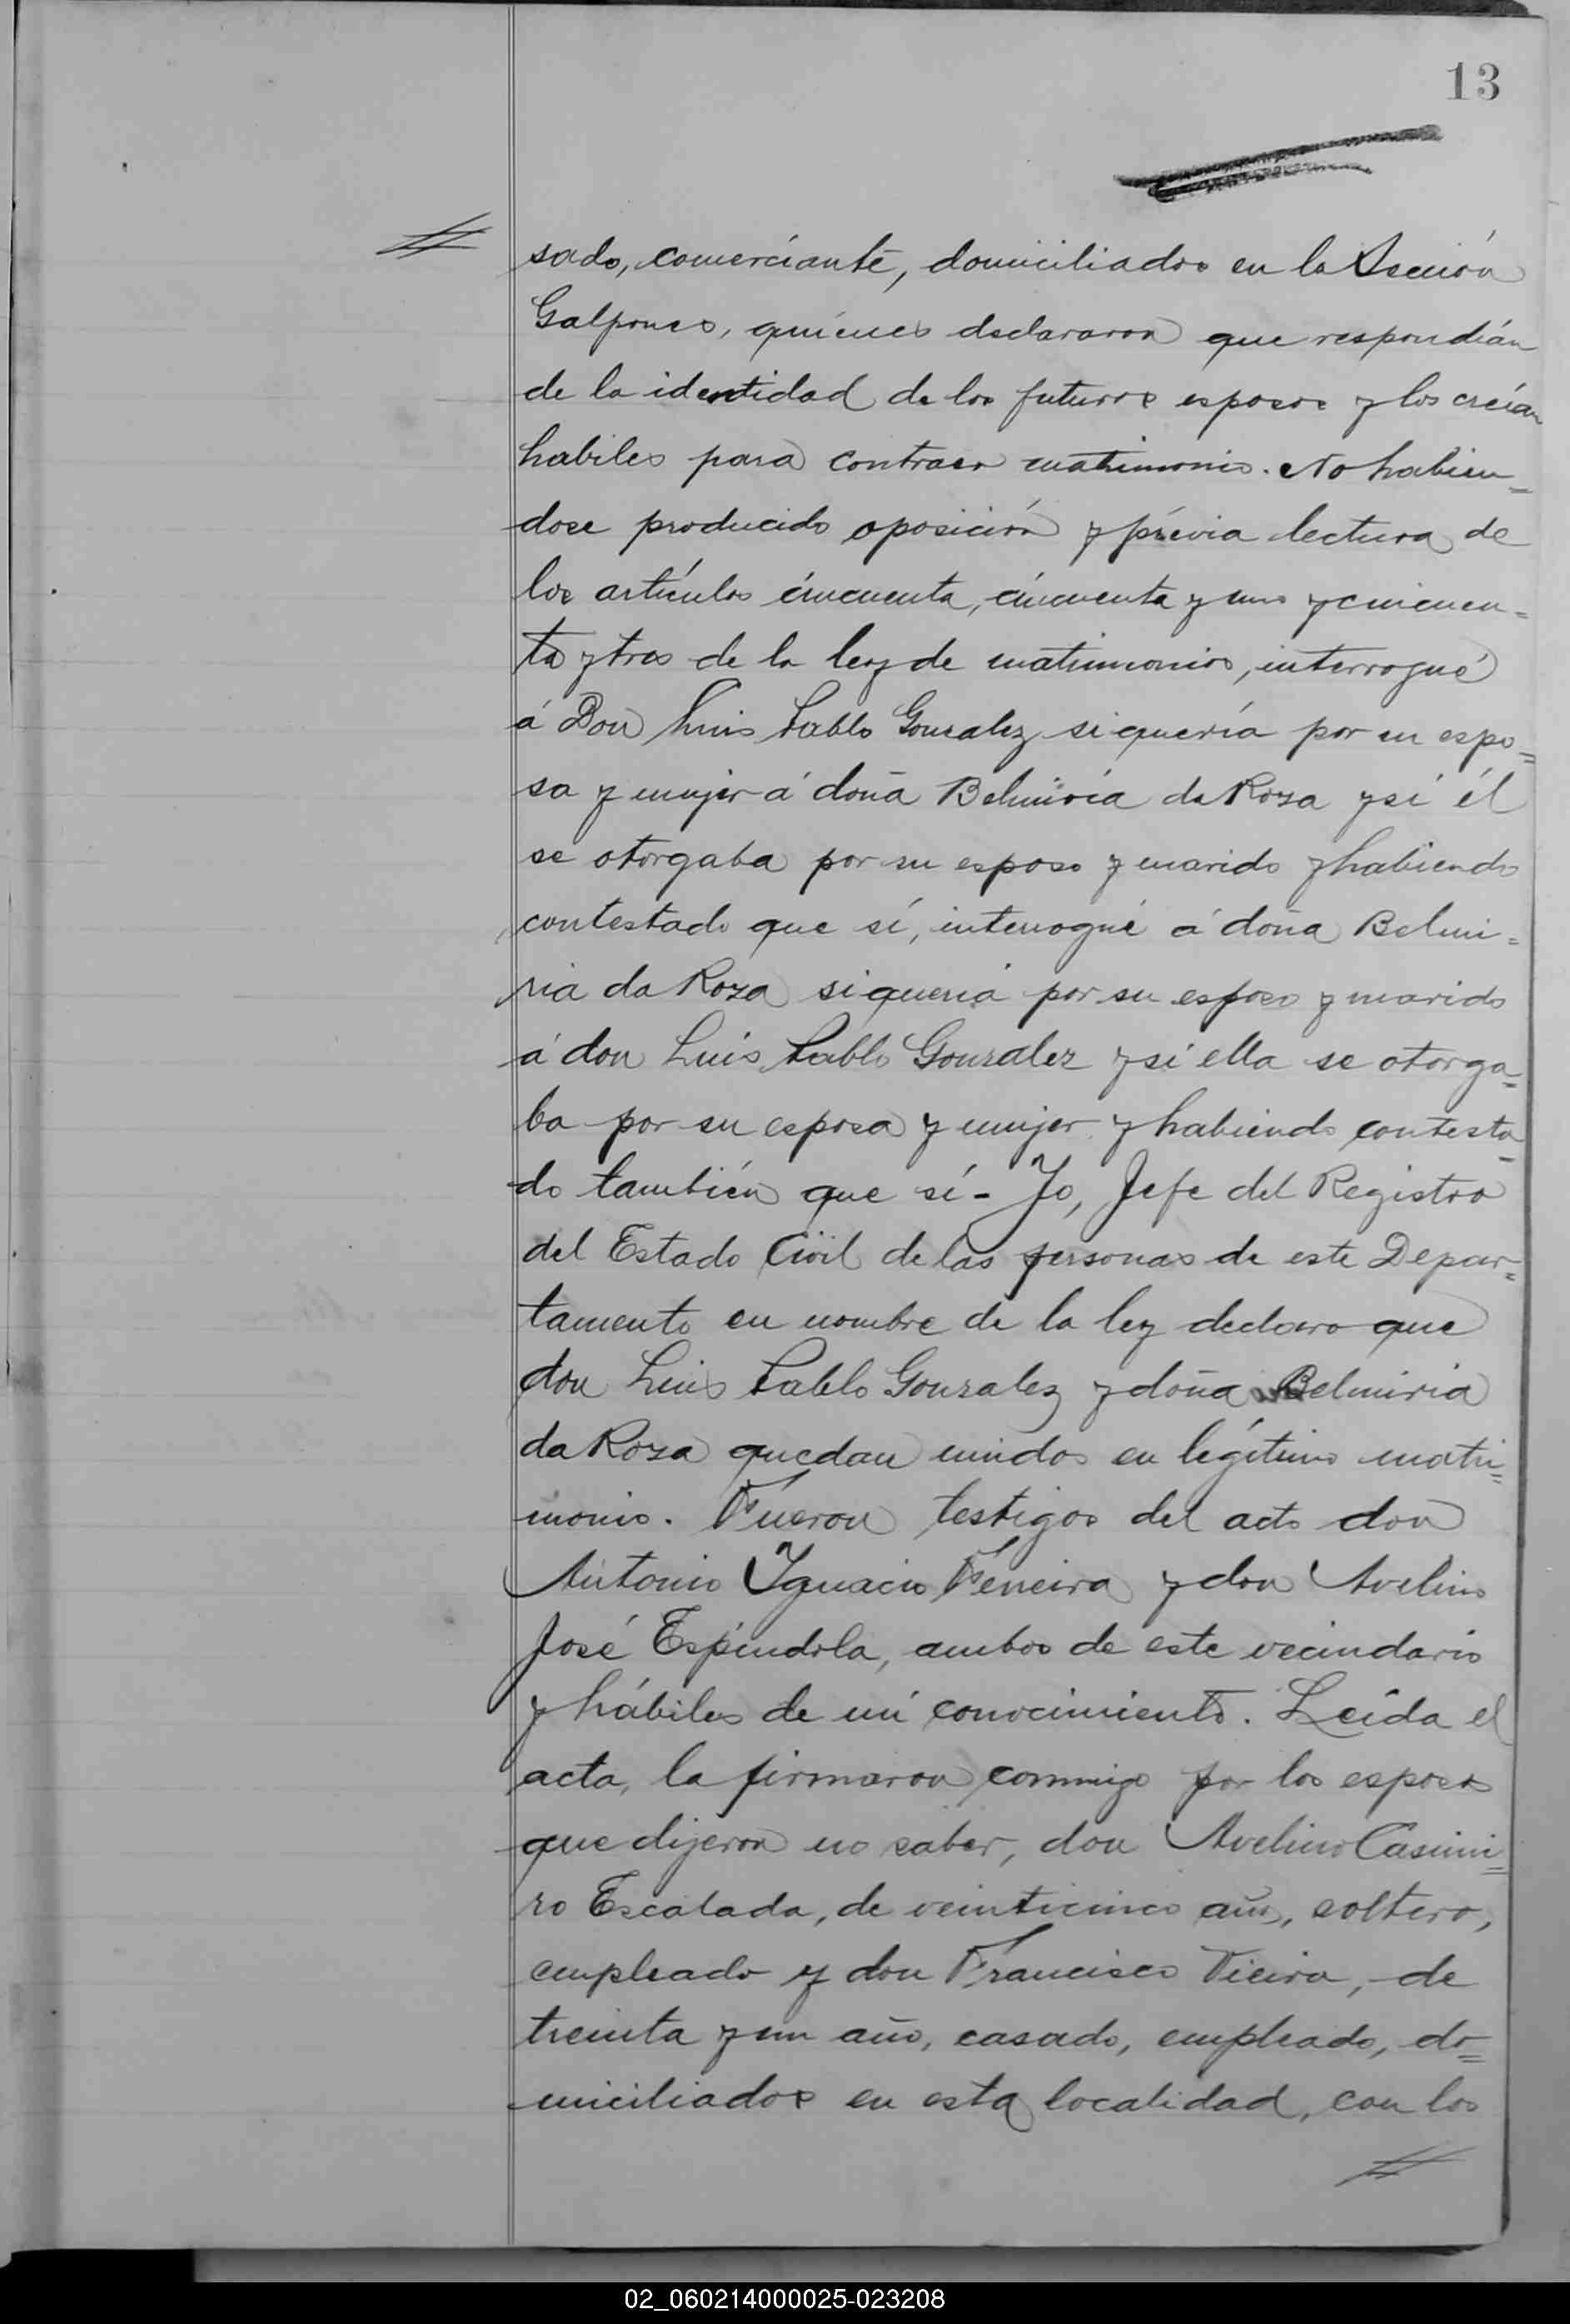 13
sado, comerciante, domiciliados en la Sección
Galpones, quienes declararon que respondían
de la identidad de los futuros esposos y los creían
habiles para contraer matrimonio. No habien-
dose producido oposición y prévia lectura de
los artículos cincuenta, cincuenta y uno y cincuen=
ta y tres de la ley de matrimonios, interrogué
á Don Luis Pablo Gonzalez si quería por su espo=
sa y mujer á doña Belmiria da Roza y si él
se otorgaba por su esposo y marido y habiendo
contestado que sí, interrogué á doña Belmi=
ria da Roza si queria por su esposo y marido
á don Luis Pablo Gonzalez y si ella se otorga=
ba por su esposa y mujer y habiendo contesta-
do también que sí - Yo, Jefe del Registro
del Estado Civil de las personas de este Depar=
tamento en nombre de la ley declaro que
don Luis Pablo Gonzalez y doña Belmiria
da Roza quedan unidos en legítimo matri=
monio. Fueron testigos del acto don
Antonio Ygnacio Ferreira y don Avelino
José Espíndola, ambos de este vecindario
y hábiles de mi conocimiento. Leída el
acta, la firmaron conmigo por los esposos
que dijeron no saber, don Avelino Casimi=
ro Escalada, de veinticinco años, soltero,
empleado y don Francisco Vieira, de
treinta y un año, casado, empleado, do=
miciliados en esta localidad, con los
02_060214000025-023208